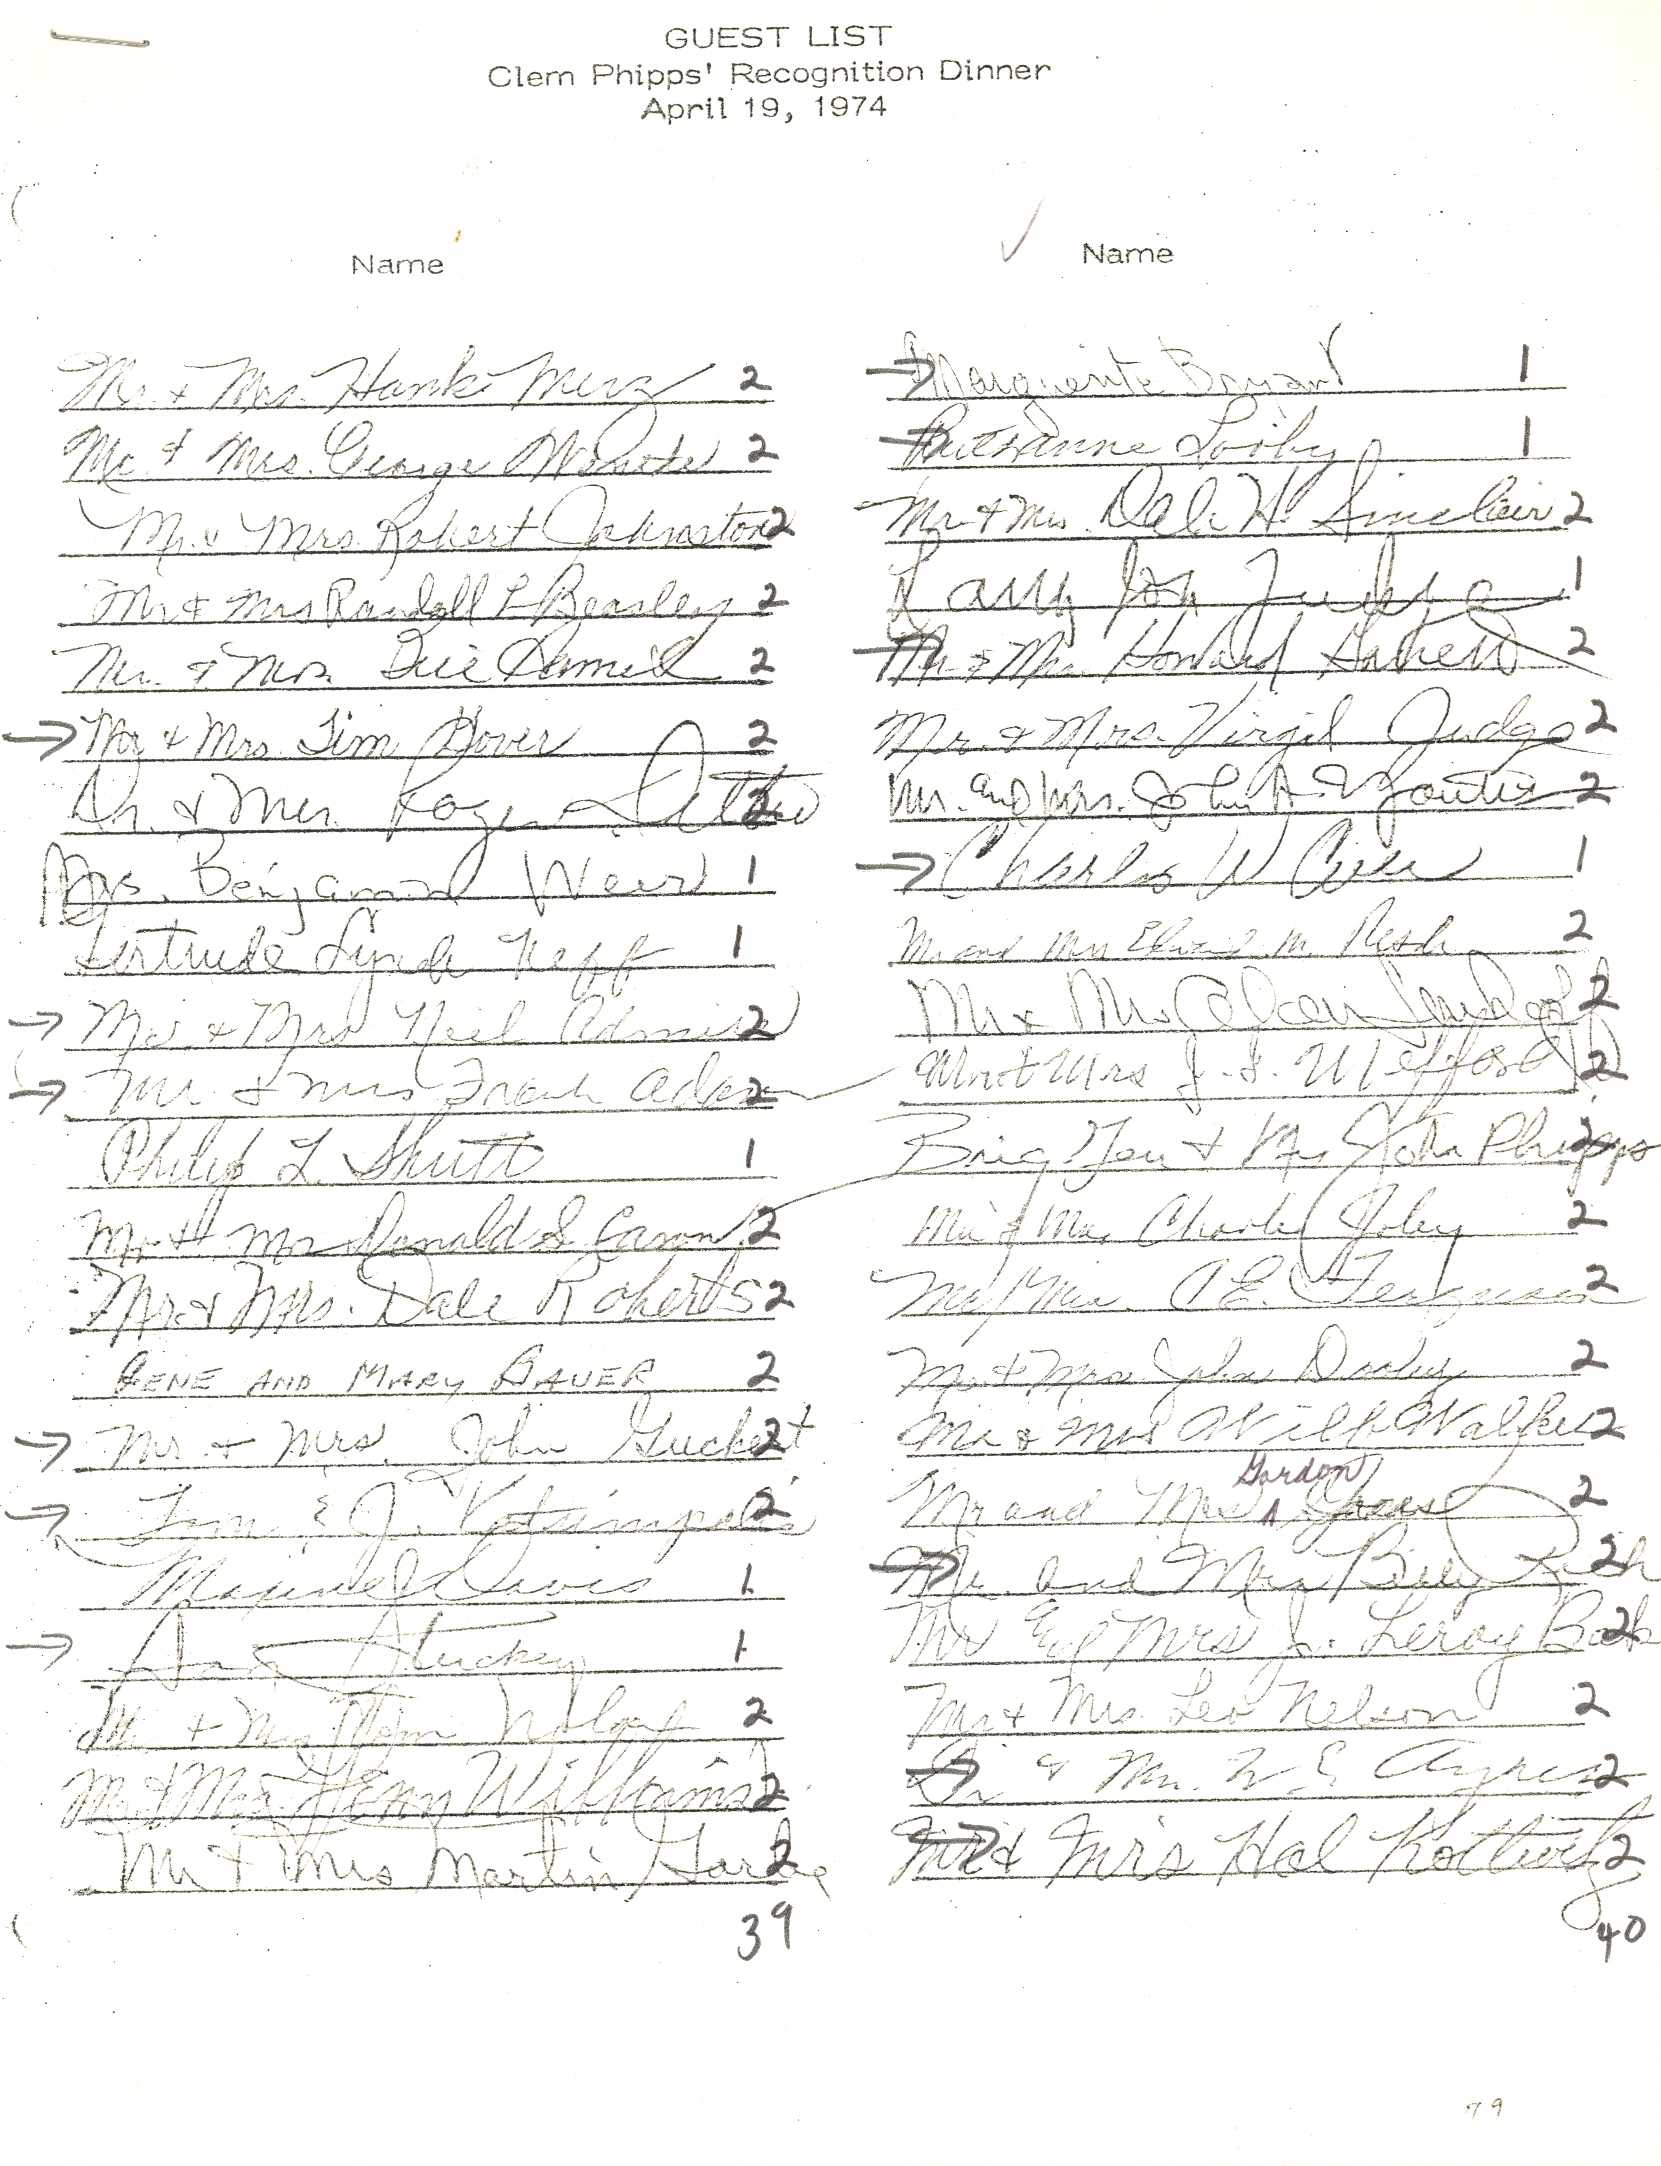 GUEST LIST
Clem Phipps' Recognition Dinner
April 19, 1974
Name
Mr. & Mrs. Hank Merz 2
Mr. & Mrs. George 2
Mr. & Mrs. Robert Johnston 2
Mr & Mrs Randall L Beasley 2
Mr. & Mrs. 2
→ Mr & Mrs. Jim Hover 2
Dr. & Mrs. Roger 2
Mrs. Benjamin Weir 1
Gertrude Lynde Neff 1
→ Mr. & Mrs Neil Admire 2
→ Mr & Mrs Frank 2
Philip L. Shutt 1
Mr & Mrs Donald S. 2
Mr. & Mrs. Dale Roberts 2
GENE AND MARY BAUER 2
→ Mr. & Mrs. John Guckert 2
→ Tom & J. Katsimpalis 2
Maxine J Davis 1
→ Stuckey 1
Mr. & Mrs. 2
Mr & Mrs Glenn Williams 2
Mr & Mrs Martin 2
39
✓ Name
→ Marguerite Bryant 1
→ Ruthanne Looby 1
Mr & Mrs. Dale H. Sinclair 2
Larry Jon Judge 1
→ Mr & Mrs. Howard 2
Mr. & Mrs. Virgil Judge 2
Mr. and Mrs. John A. 2
→ Charles W 1
Mr and Mrs M. 2
Mr & Mrs 2
Mr & Mrs J. I. Mefford 2
Brig Gen & Mrs John Phipps 2
Mr & Mrs. Charles Joley 2
Mr/Mrs. C E. Ferguson 2
Mr & Mrs. John Dooley 2
Mr & Mrs Walker 2
Mr and Mrs Gordon 2
→ Mr. and Mrs Billy 2
Mr and Mrs J. Leroy 2
Mr & Mrs. Leo Nelson 2
→ Dr & Mrs. W E Ayres 2
→ Mr & Mrs Hal Kottwitz 2
40
79